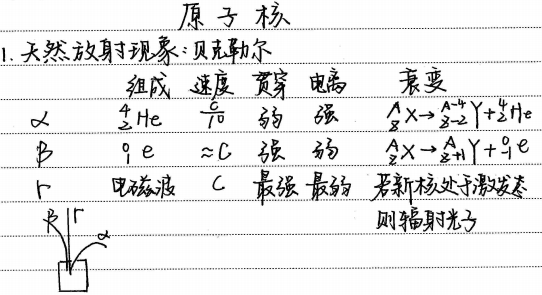 原子核
1. 天然放射现象:贝克勒尔
组成 速度 贯穿 电离 衰变
α ⁴₂He c/10 弱 强 ᴬ_Z X→ᴬ⁻⁴_Z-2 Y+⁴₂He
β ⁰₁e ≈C 强 弱 ᴬ_Z X→ᴬ_Z+1 Y+⁰₋₁e
r 电磁波 C 最强 最弱 若新核处于激发态
则辐射光子
β r α